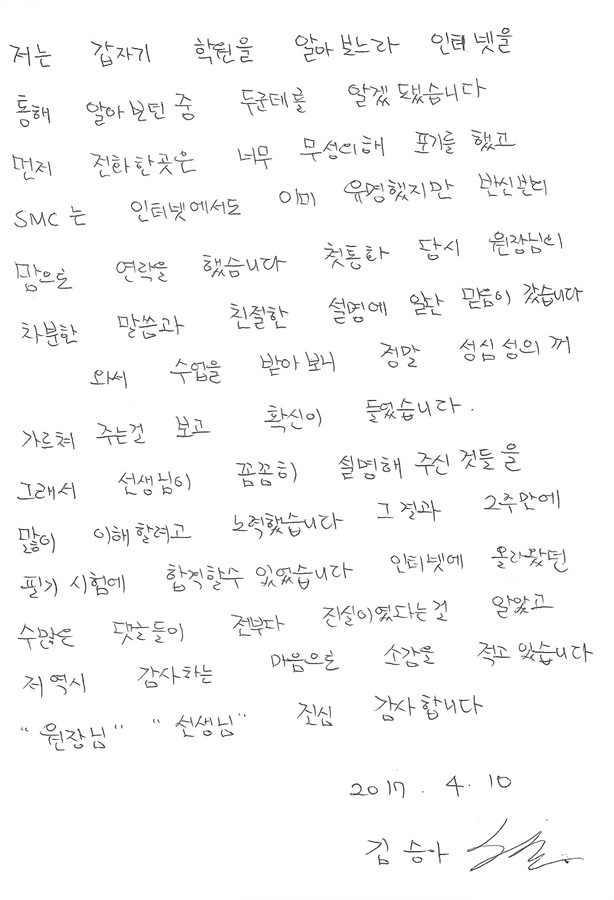 저는 갑자기 학원을 알아보느라 인터넷을
통해 알아보던 중 두군데를 알겠됐습니다
먼저 전화한곳은 너무 무성의해 포기를 했고
SMC는 인터넷에서도 이미 유명했지만 반신반의
맘으로 연락을 했습니다 첫통화 당시 원장님의
차분한 말씀과 친절한 설명에 일단 믿음이 갔습니다
와서 수업을 받아보니 정말 성심성의 꺼
가르쳐 주는걸 보고 확신이 들었습니다.
그래서 선생님이 꼼꼼히 설명해 주신 것들을
많이 이해할려고 노력했습니다 그 결과 2주만에
필기 시험에 합격할수 있었습니다 인터넷에 올라왔던
수많은 댓글들이 전부다 진실이였다는걸 알았고
저 역시 감사하는 마음으로 소감을 적고 있습니다
"원장님" "선생님" 진심 감사합니다
2017. 4. 10
김승아